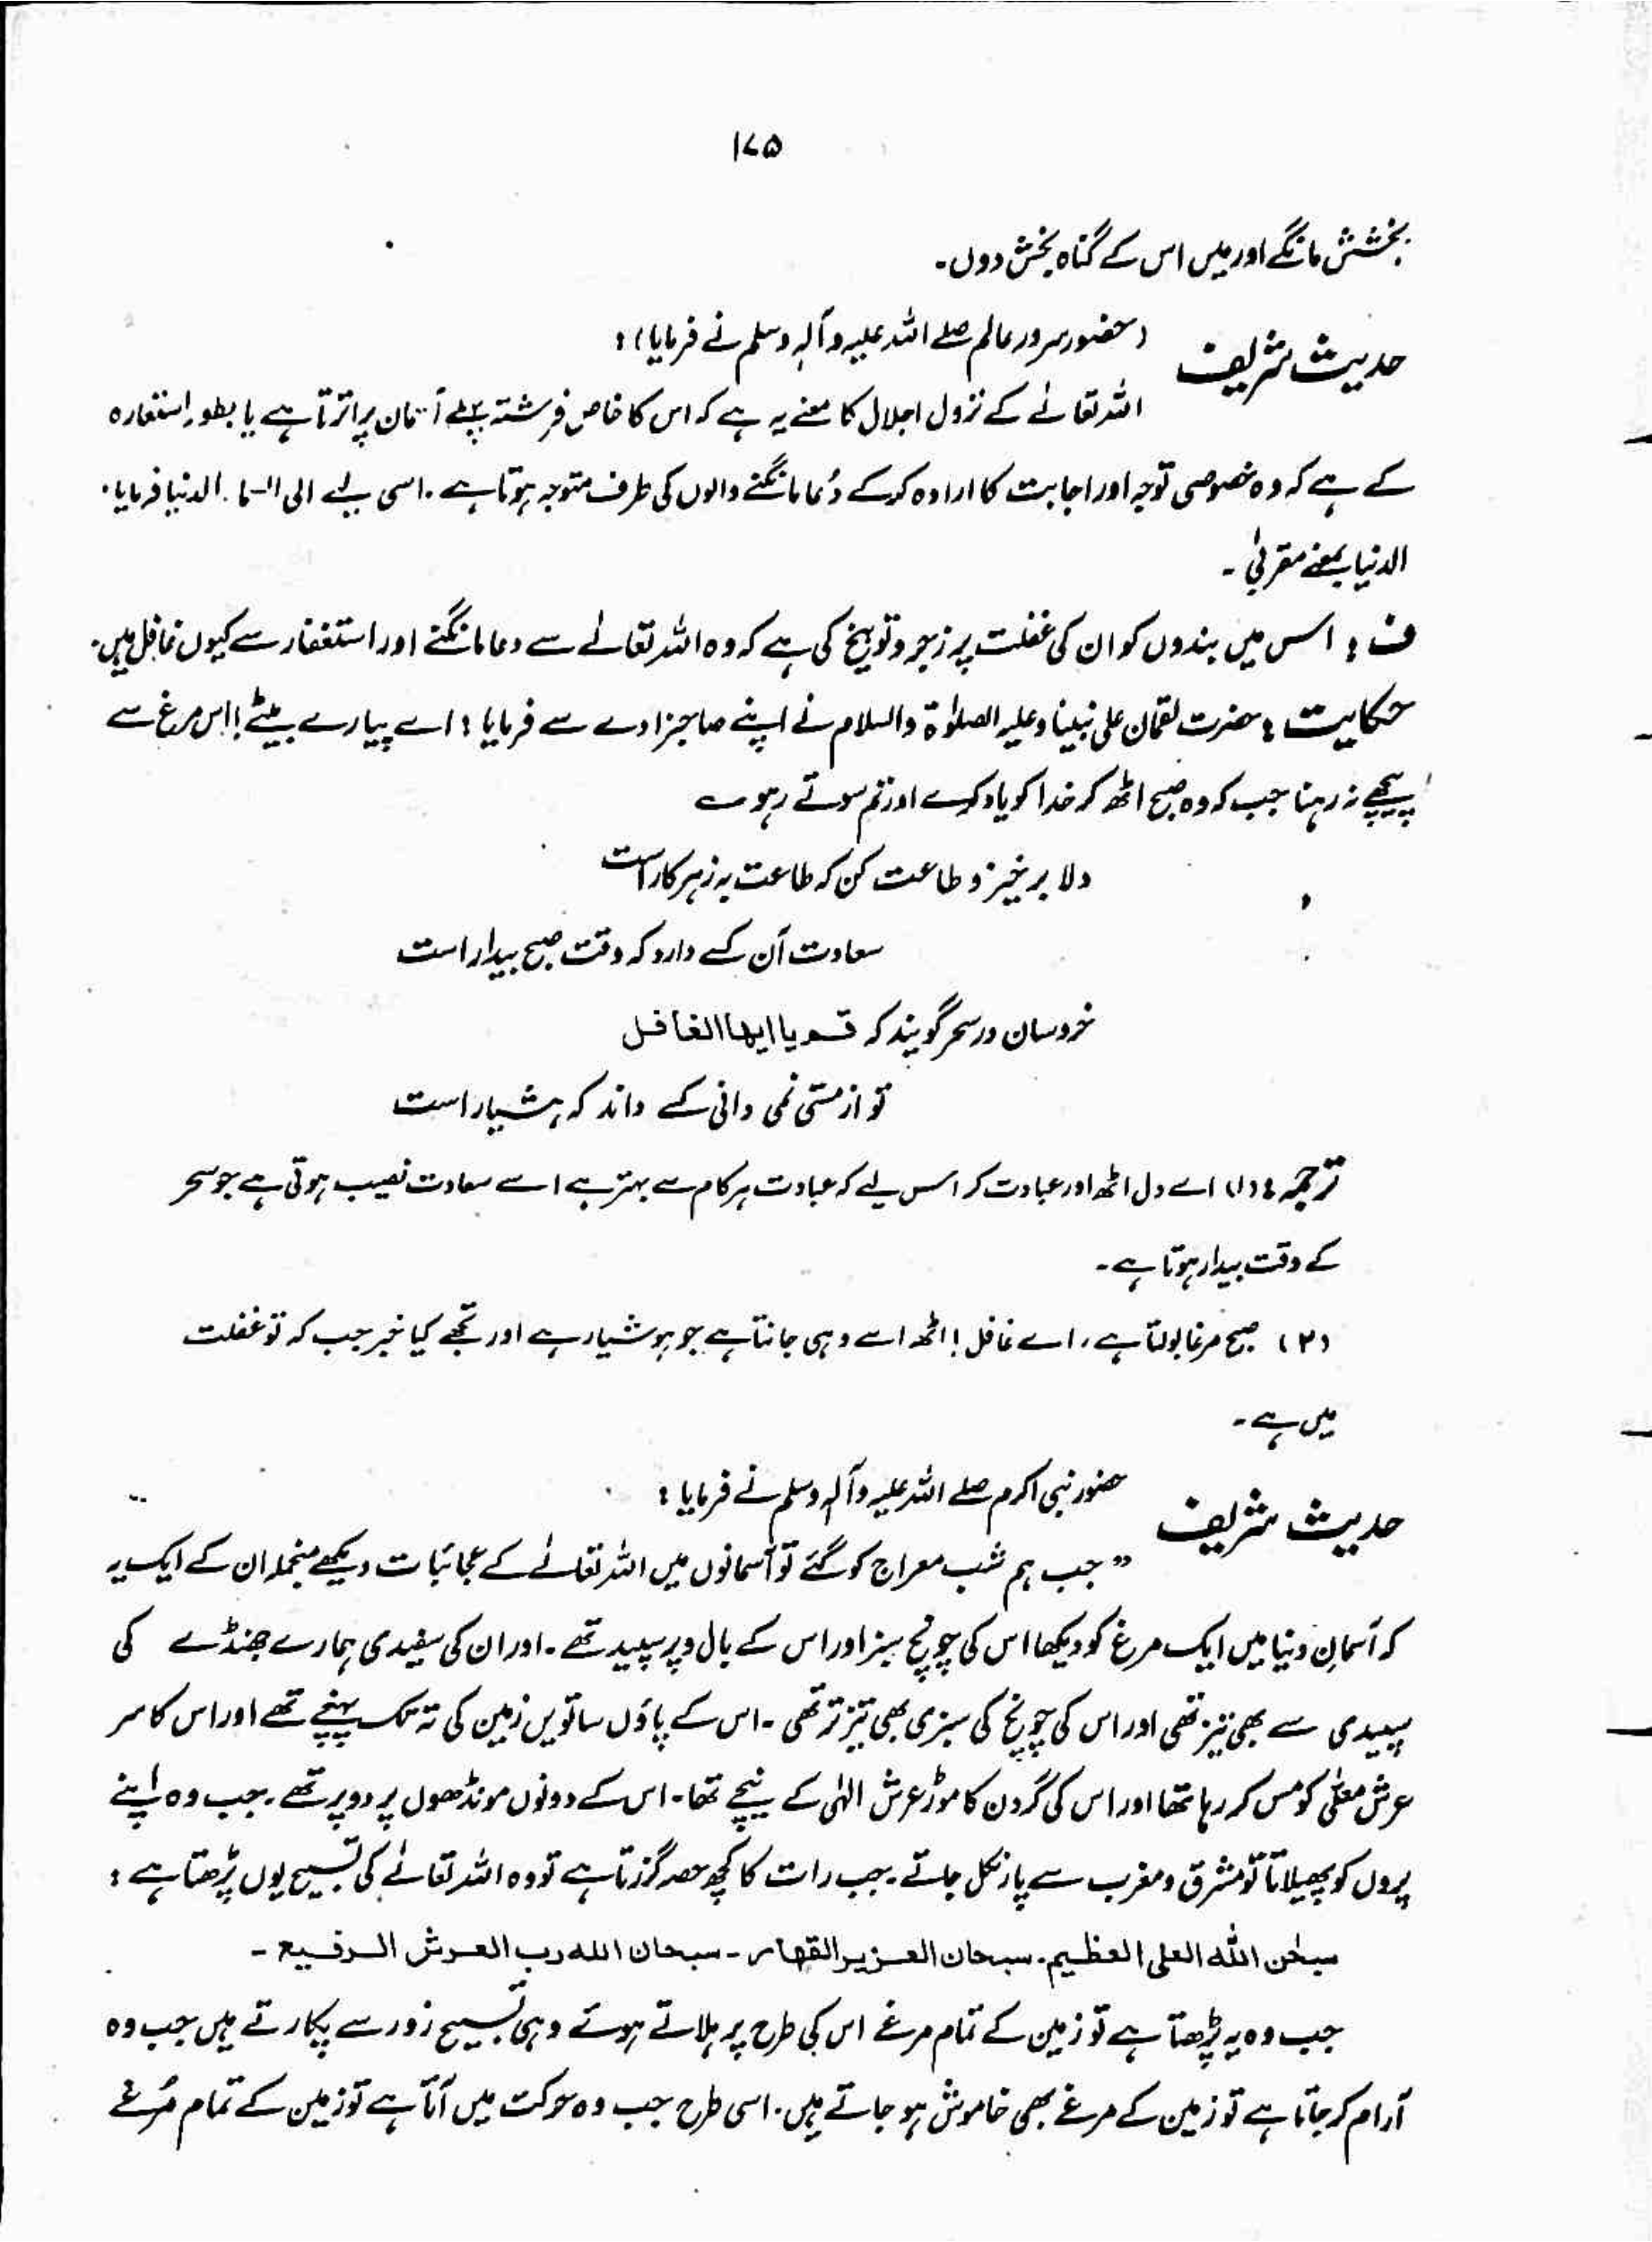 ۱۷۵
بخشش مانگے اور میں اس کے گناہ بخش دوں۔
حدیث شریف (حضور سرور عالم صلے اللہ علیہ وآلہٖ وسلم نے فرمایا) :
اللہ تعالےٰ کے نزول اجلال کا معنے یہ ہے کہ اس کا خاص فرشتہ پہلے آسمان پر اترتا ہے یا بطور استعارہ
کے ہے کہ وہ خصوصی توجہ اور اجابت کا ارادہ کرکے دُعا مانگنے والوں کی طرف متوجہ ہوتا ہے۔ اسی لیے الی السما۔ الدنیا فرمایا۔
الدنیا بمعنے مقربیٰ ۔
ف : اس میں بندوں کو ان کی غفلت پر زجر و توبیخ کی ہے کہ وہ اللہ تعالےٰ سے دعا مانگنے اور استغفار سے کیوں غافل ہیں۔
حکایت : حضرت لقمان علی نبینا وعلیہ الصلوٰۃ والسلام نے اپنے صاحبزادے سے فرمایا : اے پیارے بیٹے! اس مرغ سے
پیچھے نہ رہنا جب کہ وہ صبح اٹھ کر خدا کو یاد کرے اور تم سوتے رہو ؎
دلا برخیز و طاعت کن کہ طاعت بہ زہر کار است
سعادت آن کسے دارد کہ وقت صبح بیدار است
خروسان در سحر گویند کہ قم یا ایھا الغافل
تو از مستی نمی دانی کسے داند کہ ہشیار است
ترجمہ : (۱) اے دل اٹھ اور عبادت کر اس لیے کہ عبادت ہر کام سے بہتر ہے اسے سعادت نصیب ہوتی ہے جو سحر
کے وقت بیدار ہوتا ہے۔
(۲) صبح مرغا بولتا ہے، اے غافل! اٹھ اسے وہی جانتا ہے جو ہوشیار ہے اور تجھے کیا خبر جب کہ تو غفلت
میں ہے۔
حدیث شریف حضور نبی اکرم صلے اللہ علیہ وآلہٖ وسلم نے فرمایا :
"جب ہم شب معراج کو گئے تو آسمانوں میں اللہ تعالےٰ کے عجائبات دیکھے منجملہ ان کے ایک یہ
کہ آسمانِ دنیا میں ایک مرغ کو دیکھا اس کی چونچ سبز اور اس کے بال و پر سپید تھے۔ اور ان کی سفیدی ہمارے جھنڈے کی
سپیدی سے بھی تیز تھی اور اس کی چونچ کی سبزی بھی تیز تر تھی۔ اس کے پاؤں ساتویں زمین کی تہ تک پہنچے تھے اور اس کا سر
عرش معلیٰ کو مس کر رہا تھا اور اس کی گردن کا موڑ عرش الٰہی کے نیچے تھا۔ اس کے دونوں مونڈھوں پر دو پر تھے۔ جب وہ اپنے
پروں کو پھیلاتا تو مشرق و مغرب سے پار نکل جاتے۔ جب رات کا کچھ حصہ گزرتا ہے تو وہ اللہ تعالےٰ کی تسبیح یوں پڑھتا ہے :
سبحٰن اللہ العلی العظیم۔ سبحان العزیز القھار۔ سبحان اللہ رب العرش الرفیع ۔
جب وہ یہ پڑھتا ہے تو زمین کے تمام مرغے اس کی طرح پر ہلاتے ہوئے وہی تسبیح زور سے پکارتے ہیں جب وہ
آرام کر جاتا ہے تو زمین کے مرغے بھی خاموش ہو جاتے ہیں۔ اسی طرح جب وہ حرکت میں آتا ہے تو زمین کے تمام مُرغے